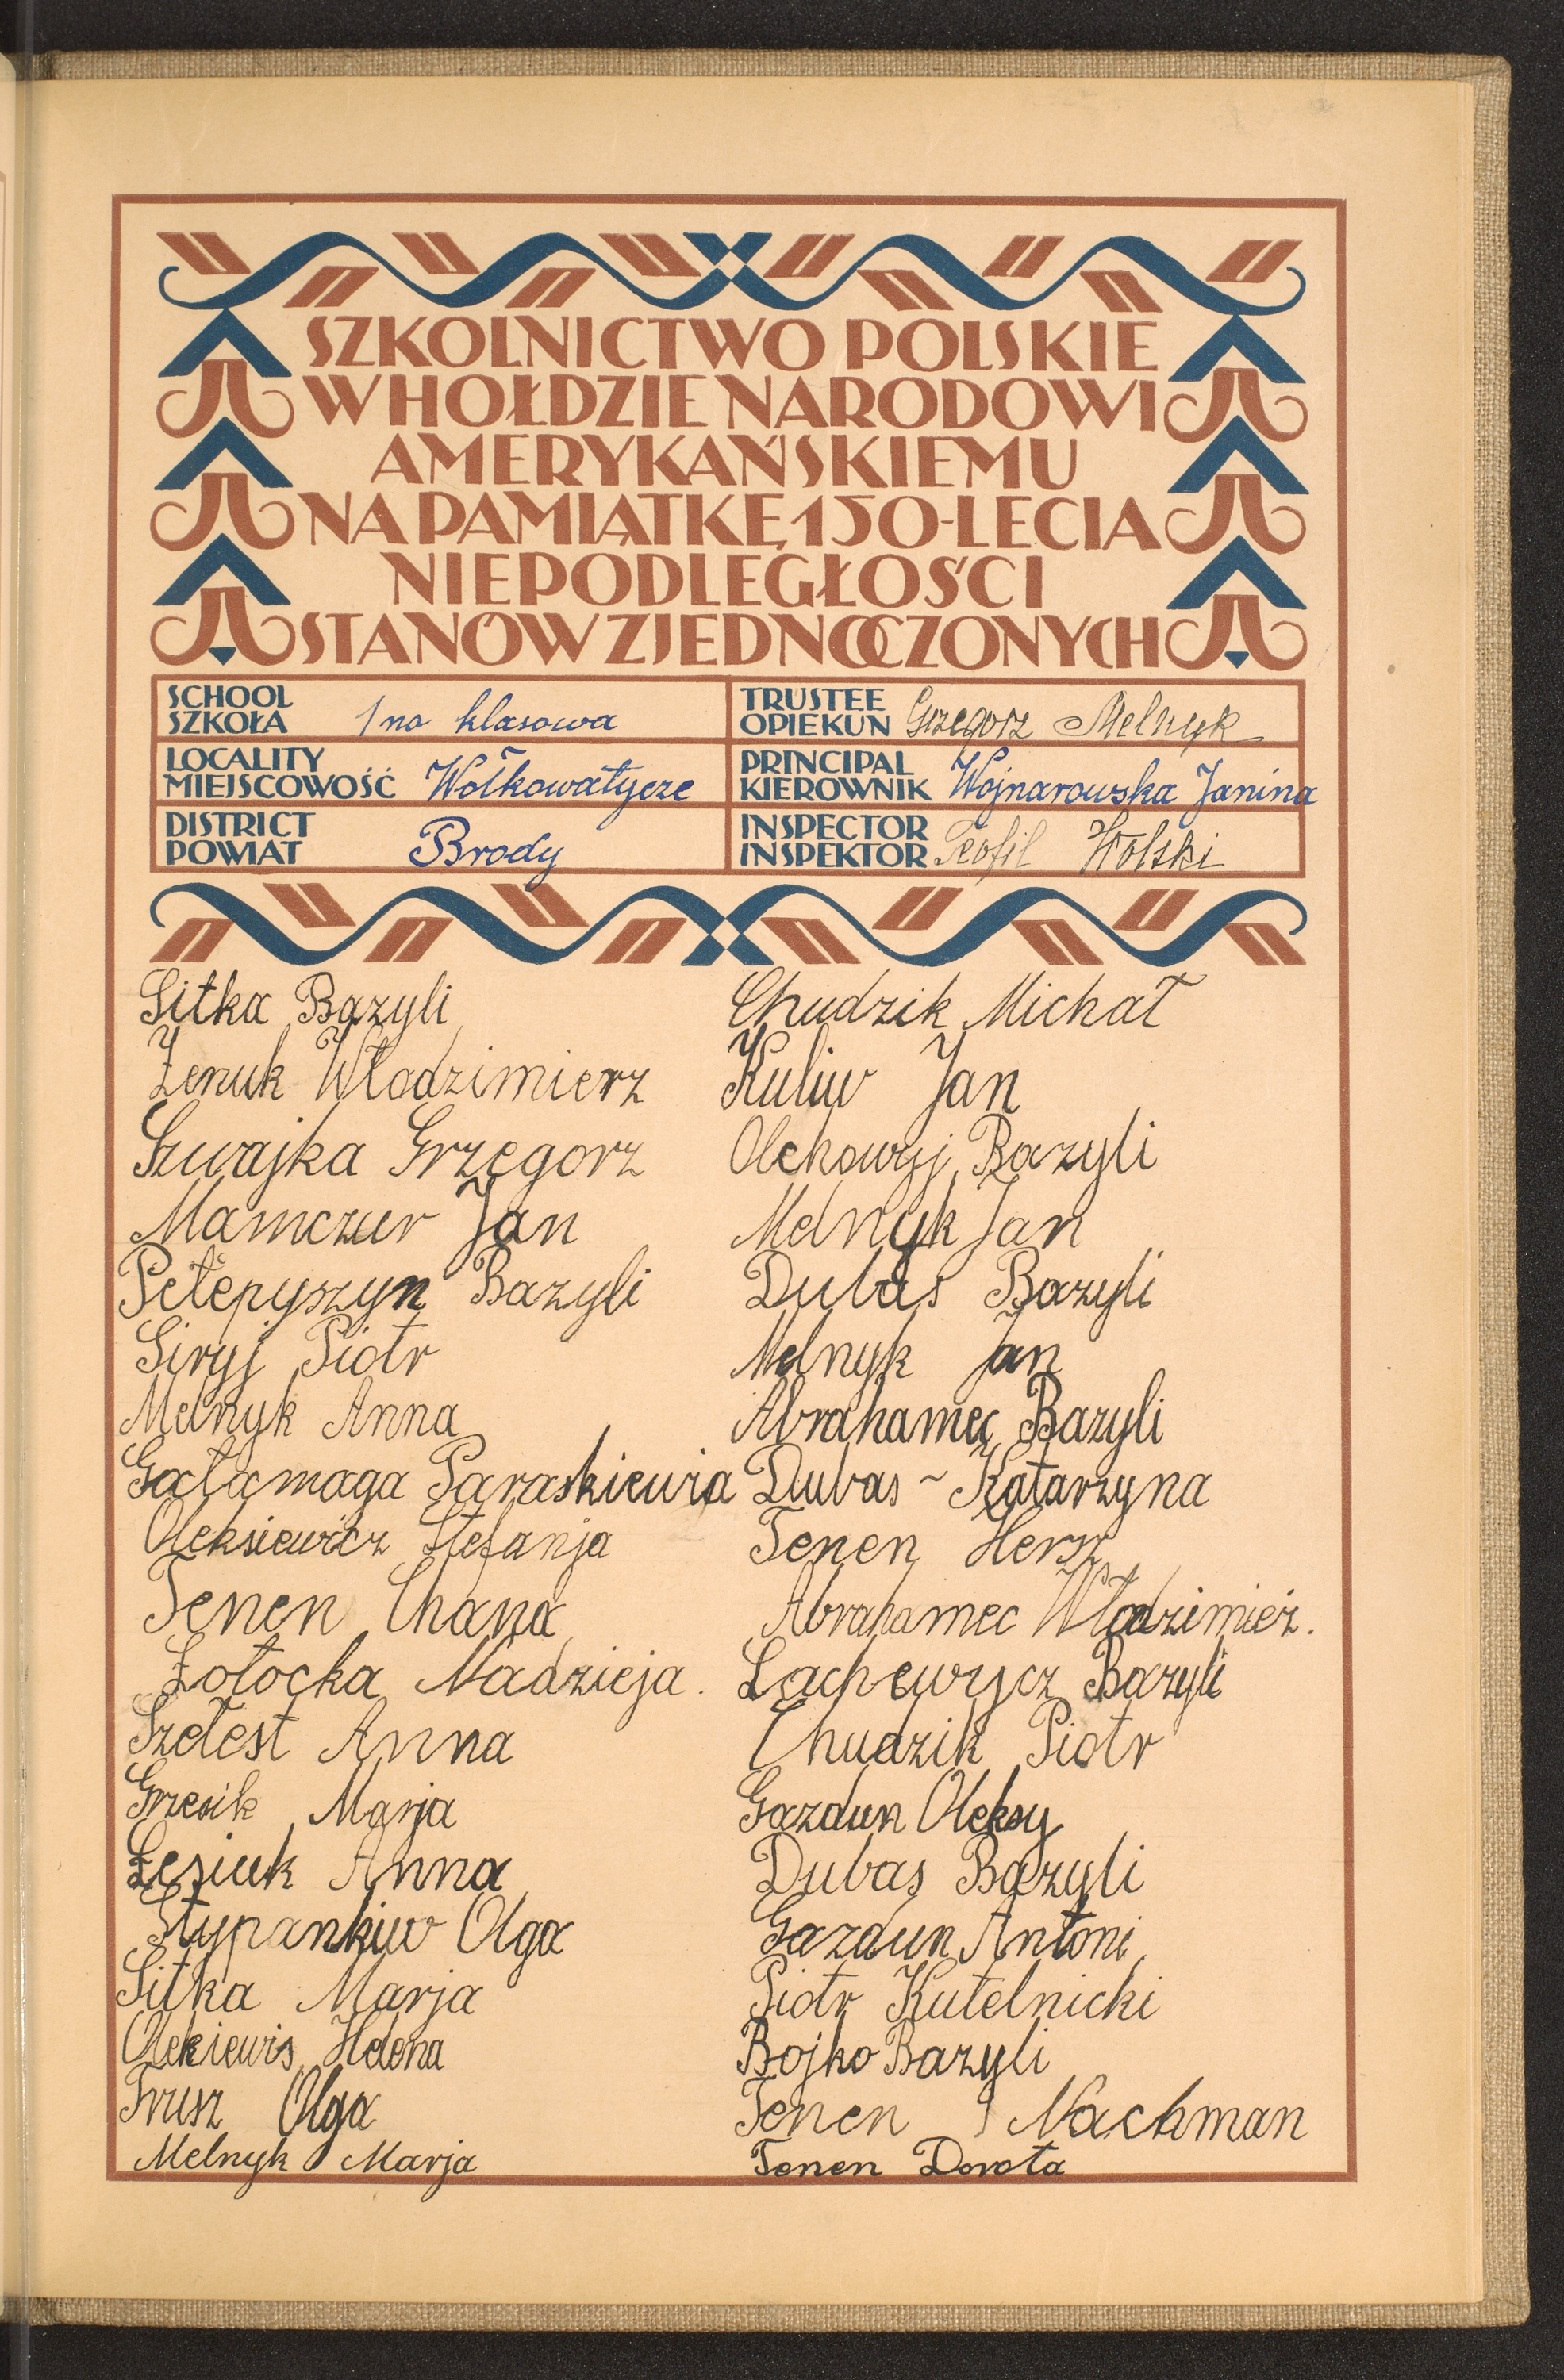 SZKOLNICTWO POLSKIE
W HOŁDZIE NARODOWI
AMERYKAŃSKIEMU
NA PAMIĄTKĘ 150-LECIA
NIEPODLEGŁOŚCI
STANÓW ZJEDNOCZONYCH
SCHOOL
SZKOŁA 1 no klasowa
TRUSTEE
OPIEKUN Grzegorz Melnyk
LOCALITY
MIEJSCOWOŚĆ Wołkowatycze
PRINCIPAL
KIEROWNIK Wojnarowska Janina
DISTRICT
POWIAT Brody
INSPECTOR
INSPEKTOR Teofil Wolski
Sitka Bazyli
Żenuk Włodzimierz
Szwajka Grzegorz
Mamczur Jan
Petepyszyn Bazyli
Siryj Piotr
Melnyk Anna
Gałamaga Paraskiewia
Oleksiewicz Stefanja
Tenen Chana
Zołocka Nadzieja.
Szełest Anna
Grzesik Marja
Łesiuk Anna
Stypankiw Olga
Sitka Marja
Olekiewis Helena
Trusz Olga
Melnyk Marja
Chudzik Michał
Kuliw Jan
Olchowyj Bazyli
Melnyk Jan
Dubas Bazyli
Melnyk Jan
Abrahamec Bazyli
Dubas ~ Katarzyna
Tenen Hersz
Abrahamec Włodzimież.
Lachewycz Bazyli
Chudzik Piotr
Gazdun Oleksy
Dubas Bazyli
Gazdun Antoni
Piotr Kutelnicki
Bojko Bazyli
Tenen Nachman
Tenen Dorota